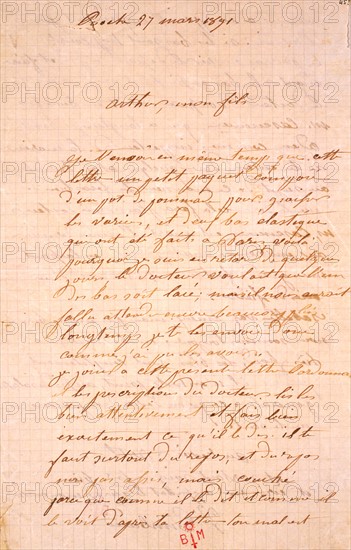 Roche 27 mars 1891
Arthur, mon fils
Je t'envoie en même temps que cette
lettre un petit paquet composé
d'un pot de pommade pour graisser
les varices, et deux bas élastique
qui ont été faits à Paris, voilà
pourquoi je suis en retard de quelques
jours le docteur voulait que l'un
des bas soit lacé; mais il nous aurait
fallu attendre encore beaucoup plus
longtemps je te les envoie donc
comme j'ai pu les avoir.
je joins à cette présent lettre l'ordonnance
et les prescriptions du docteur lis les
bien attentivement et fais bien
exactement ce qu'il te dis. il te
faut surtout du repos, et du repos
non pas assis, mais couché
parce que comme il le dit et comme il
le voit d'après ta lettre ton mal est
BM